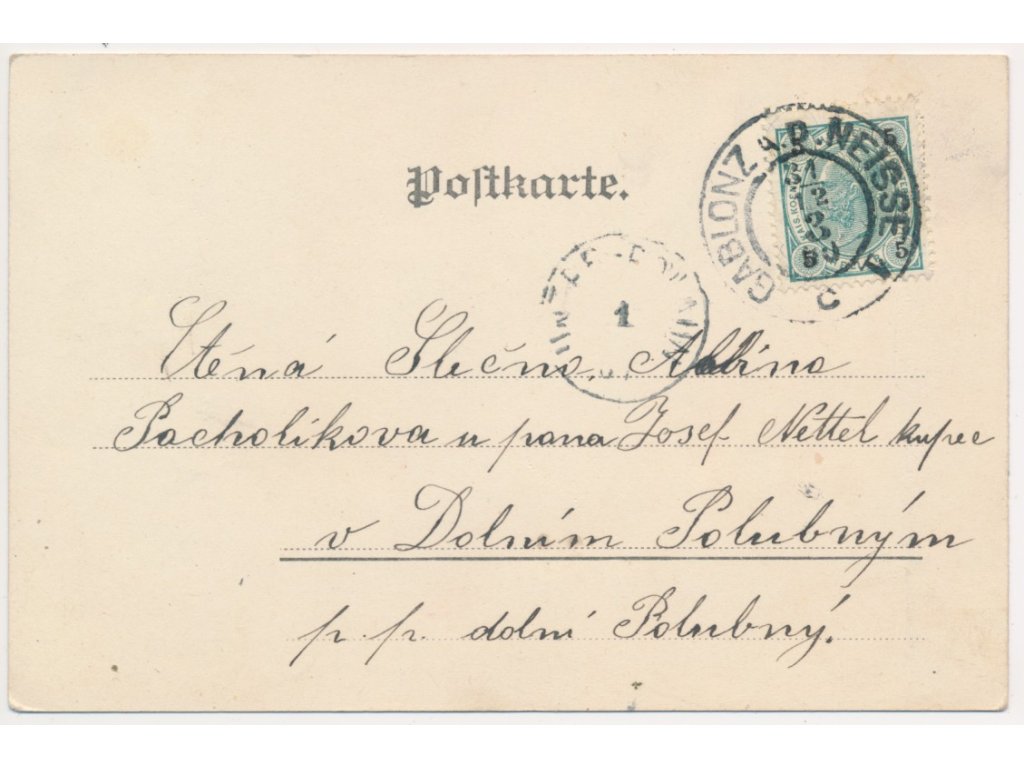 Postkarte.
GABLONZ a.D. NEISSE
5
5
5
1
Ctěná Slečna Albína
Pacholíkova u pana Josef Nettel kupec
v Dolním Polubným
p. p. dolní Polubný.